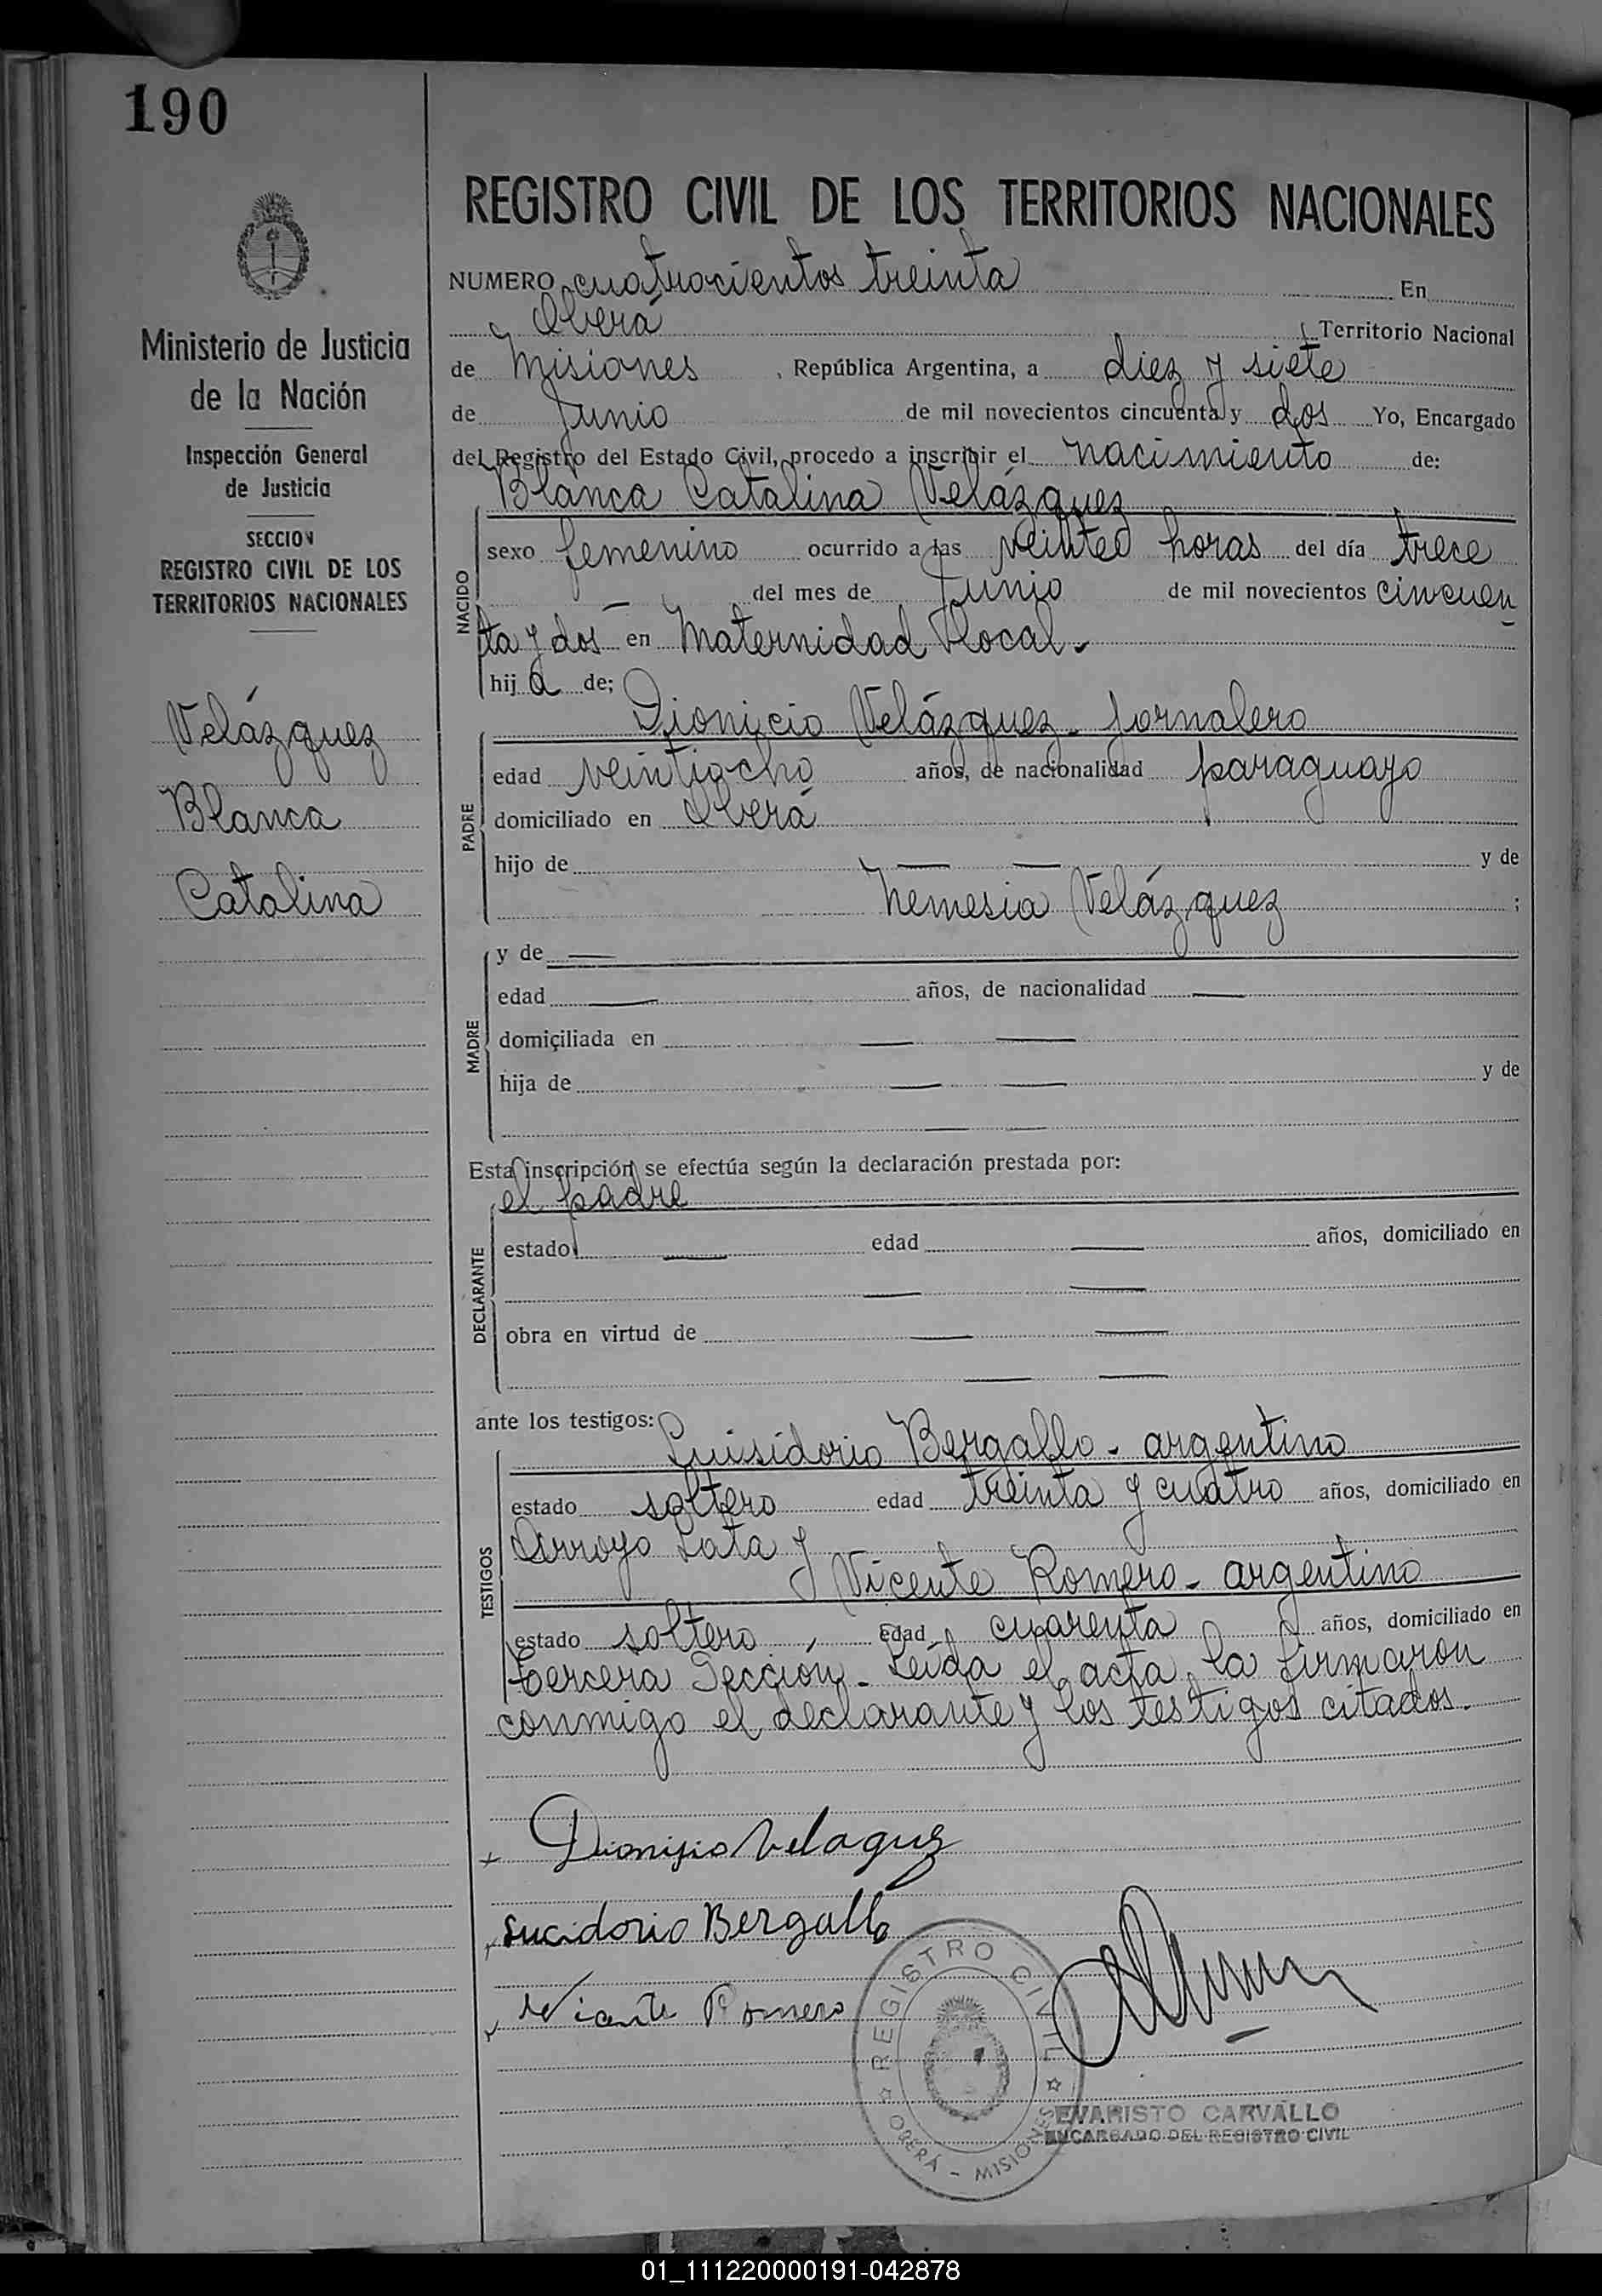 190
REGISTRO CIVIL DE LOS TERRITORIOS NACIONALES
Ministerio de Justicia
de la Nación
Inspección General
de Justicia
SECCION
REGISTRO CIVIL DE LOS
TERRITORIOS NACIONALES
Velázquez
Blanca
Catalina
NUMERO cuatrocientos treinta En
Oberá Territorio Nacional
de Misiones, República Argentina, a diez y siete
de Junio de mil novecientos cincuenta y dos Yo, Encargado
del Registro del Estado Civil, procedo a inscribir el nacimiento de:
Blanca Catalina Velázquez
NACIDO
sexo femenino ocurrido a las veinte horas del día trece
— del mes de Junio de mil novecientos cincuen
ta y dos en Maternidad Local.
hija de;
Dionicio Velázquez - jornalero
PADRE
edad veintiocho años, de nacionalidad paraguayo
domiciliado en Oberá
hijo de — — y de
Nemesia Velázquez ;
MADRE
y de —
edad — años, de nacionalidad —
domiciliada en — —
hija de — — y de
— —
Esta inscripción se efectúa según la declaración prestada por:
el padre
DECLARANTE
estado — edad — años, domiciliado en
— —
obra en virtud de — —
— —
ante los testigos:
Luisidorio Bergallo - argentino
TESTIGOS
estado soltero edad treinta y cuatro años, domiciliado en
Arroyo Lata y
Vicente Romero - argentino
estado soltero, edad cuarenta años, domiciliado en
tercera Sección - Leída el acta, la firmaron
conmigo el declarante y los testigos citados.
Dionisio Velaguz
Lucidorio Bergallo
Vicente Romero
REGISTRO CIVIL
OBERÁ - MISIONES
EVARISTO CARVALLO
ENCARGADO DEL REGISTRO CIVIL
01_111220000191-042878